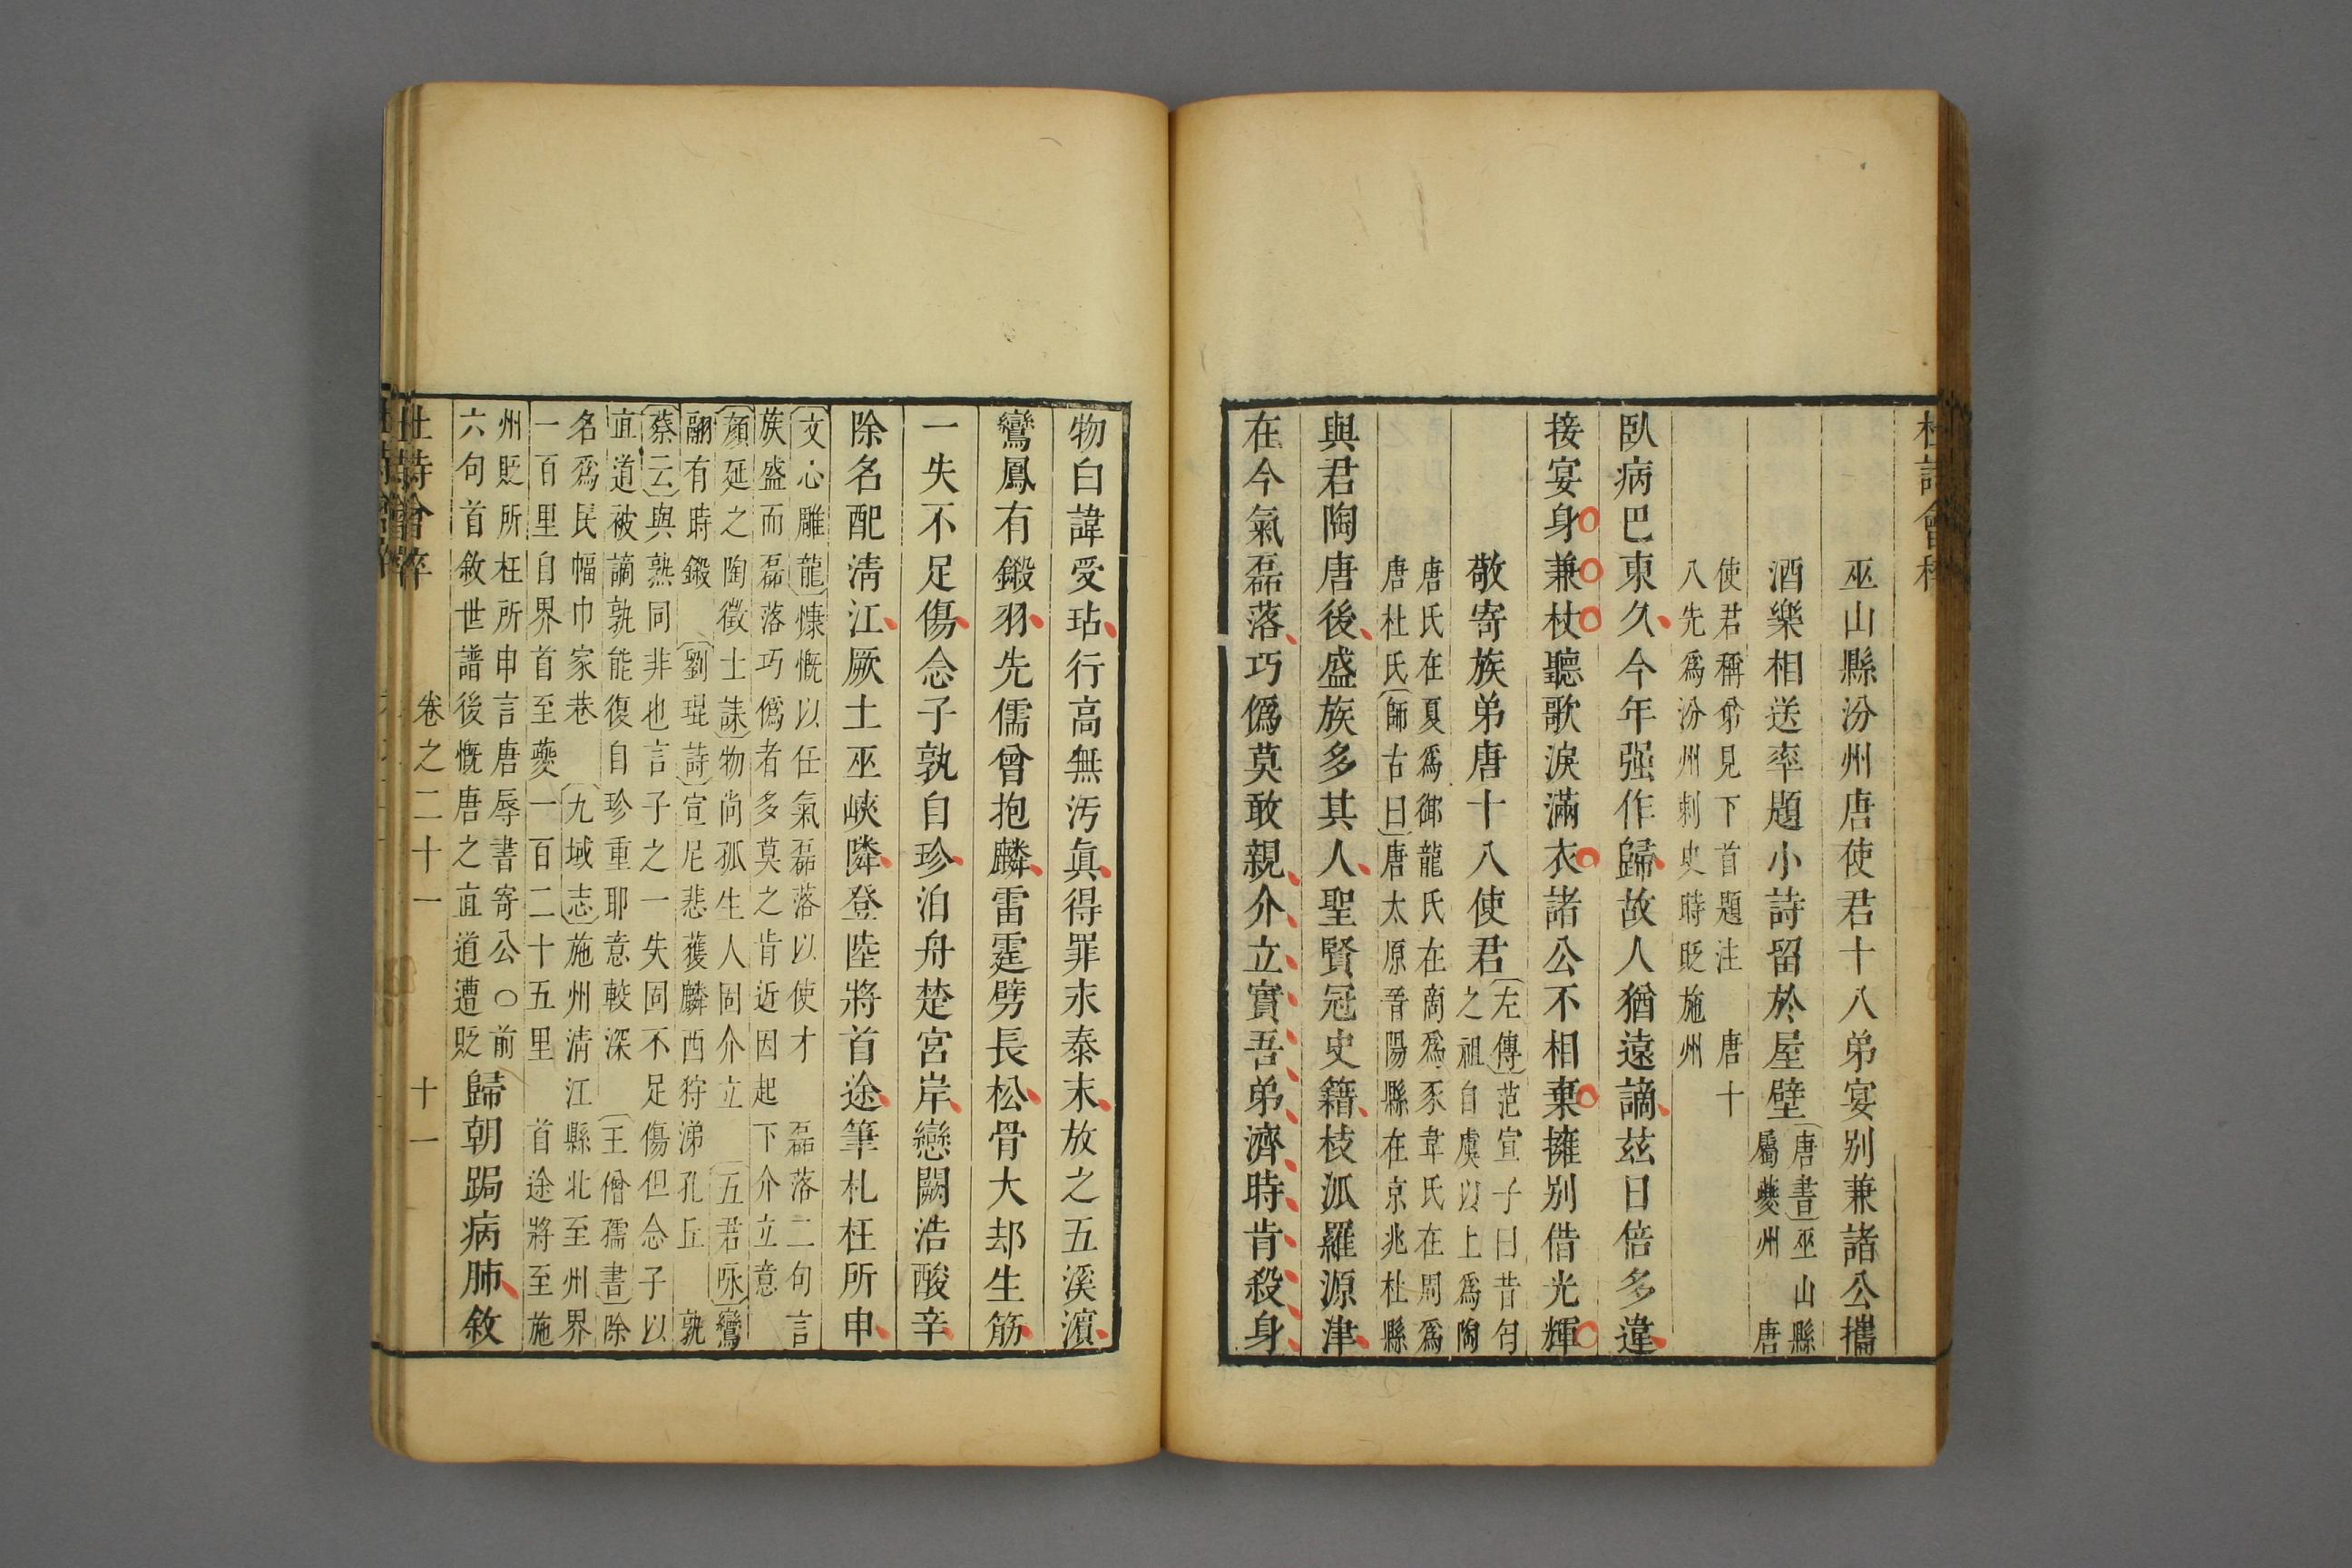 巫山縣汾州唐使君十八弟宴别兼諸公攜
酒樂相送率題小詩留於屋壁
唐書巫山縣
屬夔州　唐
使君稱爺見下首題注　唐十
八先爲汾州刺史時貶施州
臥病巴東久今年强作歸故人猶遠謫玆日倍多違
接宴身兼杖聽歌淚滿衣諸公不相棄擁别借光輝
敬寄族弟唐十八使君
左傳范宣子曰昔匄
之祖自虞以上爲陶
唐氏在夏爲御龍氏在商爲豕韋氏在周爲
唐杜氏師古曰唐太原晉陽縣在京兆杜縣
與君陶唐後盛族多其人聖賢冠史籍枝泒羅源津
在今氣磊落巧僞莫敢親介立實吾弟濟時肯殺身
物白諱受玷行高無汚眞得罪永泰末放之五溪濵
鸞鳳有鎩羽先儒曾抱麟雷霆劈長松骨大却生筋
一失不足傷念子孰自珍泊舟楚宮岸戀闕浩酸辛
除名配淸江厥土巫峽隣登陸將首途筆札枉所申
文心雕龍慷慨以任氣磊落以使才　磊落二句言
族盛而磊落巧僞者多莫之肯近因起下介立意
顔延之陶徵士誄物尚孤生人固介立　五君咏鸞
翮有時鎩　劉琨詩宣尼悲獲麟西狩涕孔丘　孰
蔡云與熟同非也言子之一失固不足傷但念子以
直道被謫孰能復自珍重耶意較深　王僧孺書除
名爲民幅巾家巷　九域志施州淸江縣北至州界
一百里自界首至夔一百二十五里　首途將至施
州貶所枉所申言唐辱書寄公○前
六句首敘世譜後慨唐之直道遭貶
歸朝跼病肺敘
卷之二十一　十一